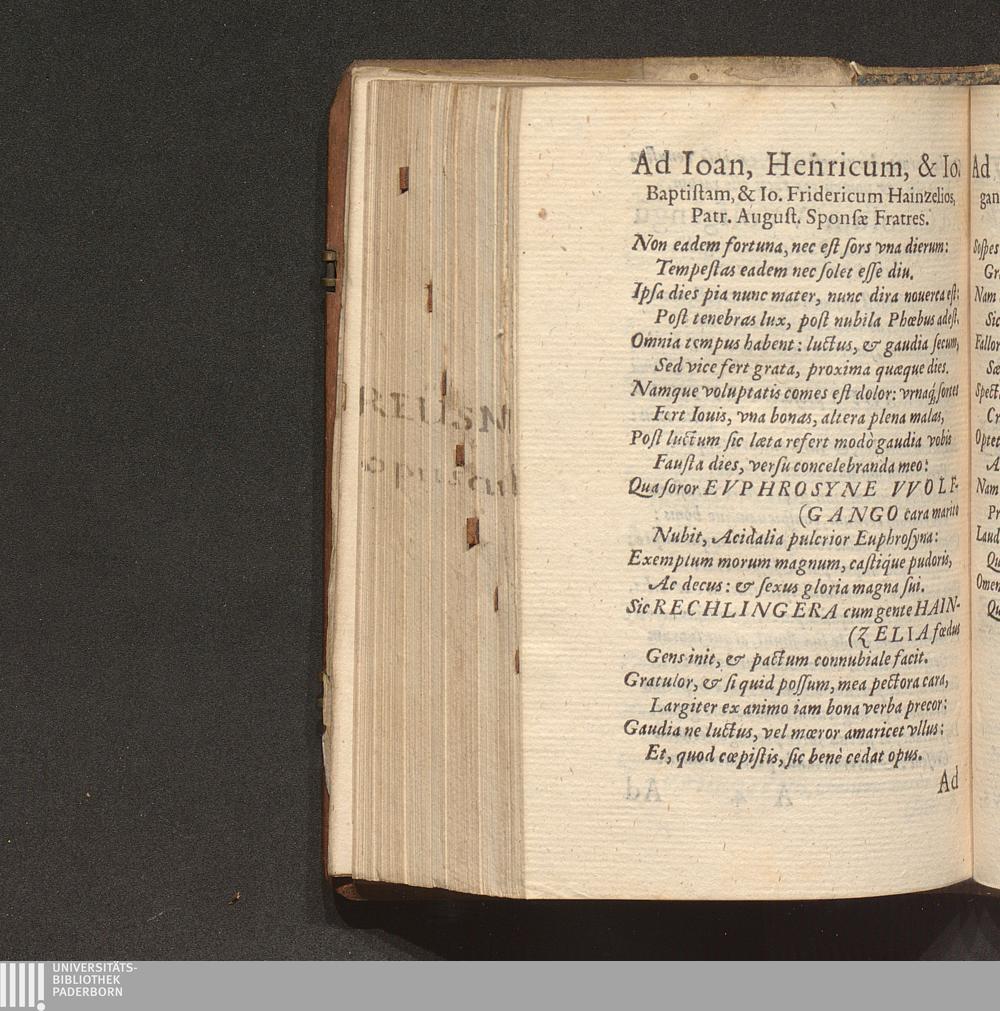 Ad Ioan, Henricum, & Io.
Baptiſtam, & Io. Fridericum Hainzelios,
Patr. Auguſt. Sponſæ Fratres.
Non eadem fortuna, nec eſt ſors vna dierum:
Tempeſtas eadem nec ſolet eſſe diu.
Ipſa dies pia nunc mater, nunc dira nouerca eſt:
Poſt tenebras lux, poſt nubila Phœbus adeſt.
Omnia tempus habent: luctus, & gaudia ſecum,
Sed vice fert grata, proxima quæque dies.
Namque voluptatis comes eſt dolor: vrnaq́; ſontes
Fert Iouis, vna bonas, altera plena malas,
Poſt luctum ſic læta refert modò gaudia vobis
Fauſta dies, verſu concelebranda meo:
Qua ſoror EVPHROSYNE VVOLF-
(GANGO cara marito
Nubit, Acidalia pulcrior Euphroſyna:
Exemptum morum magnum, caſtiq́ue pudoris,
Ac decus: & ſexus gloria magna ſui.
Sic RECHLINGERA cum gente HAIN-
(ZELIA fœdus
Gens init, & pactum connubiale facit.
Gratulor, & ſi quid poſſum, mea pectora cara,
Largiter ex animo iam bona verba precor:
Gaudia ne luctus, vel mœror amaricet vllus:
Et, quod cœpiſtis, ſic benè cedat opus.
Ad
Ad
gan
Soſpes
Gr
Nam
Sic
Fallor
Sæ
Spect
Cr
Optet
A
Nam
Pr
Laud
Qu
Omen
Qu
UNIVERSITÄTS-
BIBLIOTHEK
PADERBORN